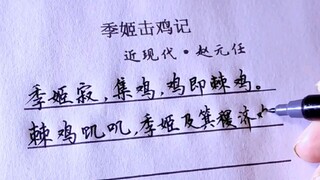 季姬击鸡记
近现代·赵元任
季姬寂，集鸡，鸡即棘鸡。
棘鸡叽叽，季姬及箕稷济